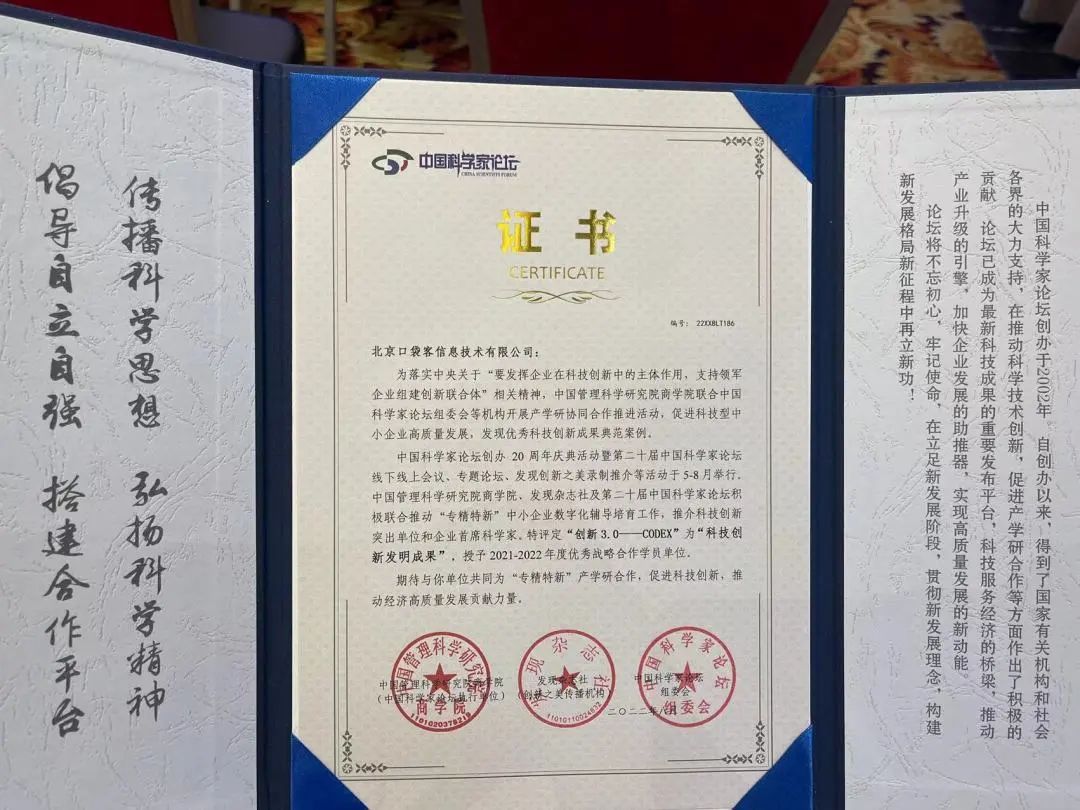 传播科学思想 弘扬科学精神
倡导自立自强 搭建合作平台
中国科学家论坛
CHINA SCIENTISTS FORUM
证书
CERTIFICATE
编号： 22XXBLT186
北京口袋客信息技术有限公司：
为落实中央关于“要发挥企业在科技创新中的主体作用，支持领军
企业组建创新联合体”相关精神，中国管理科学研究院商学院联合中国
科学家论坛组委会等机构开展产学研协同合作推进活动，促进科技型中
小企业高质量发展，发现优秀科技创新成果典范案例。
中国科学家论坛创办 20 周年庆典活动暨第二十届中国科学家论坛
线下线上会议、专题论坛、发现创新之美录制推介等活动于 5-8 月举行。
中国管理科学研究院商学院、发现杂志社及第二十届中国科学家论坛积
极联合推动“专精特新”中小企业数字化辅导培育工作，推介科技创新
突出单位和企业首席科学家。特评定“创新 3.0——CODEX”为“科技创
新发明成果”，授予 2021-2022 年度优秀战略合作学员单位。
期待与你单位共同为“专精特新”产学研合作，促进科技创新、推
动经济高质量发展贡献力量。
中国管理科学研究院商学院
（中国科学家论坛执行单位）
发现杂志社
（创新之美传播机构）
中国科学家论坛
组委会
二〇二二年八月
中国管理科学研究院
商学院
1101020378219
发现杂志社
中国科学家论坛
组委会
中国科学家论坛创办于2002年，自创办以来，得到了国家有关机构和社会
各界的大力支持，在推动科学技术创新，促进产学研合作等方面作出了积极的
贡献，论坛已成为最新科技成果的重要发布平台，科技服务经济的桥梁，推动
产业升级的引擎，加快企业发展的助推器，实现高质量发展的新动能。
论坛将不忘初心，牢记使命，在立足新发展阶段，贯彻新发展理念，构建
新发展格局新征程中再立新功！